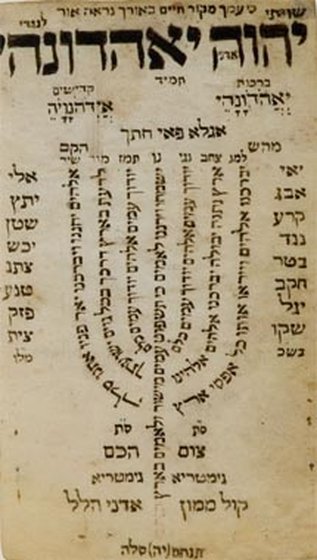 שויתי כי עמך מקור חיים באורך נראה אור לנגדי
יהוה יאהדונהי
אדני
תמיד
ברכות קדישים
יאהדונהי אידהנויה
אגלא פאי חתך
מהש הקם
למנ צחב נגי נן תמז מיו שיר
יאי אלי
אבג יתץ
קרע שטן
נגד יכש
בטר צתג
חקב טנע
יגל פזק
שקו צית
בשכ מלו
יברכנו אלהים וייראו אותו כל אפסי ארץ
ארץ נתנה יבולה יברכנו אלהים אלהינו
יודוך עמים אלהים יודוך עמים כלם
ישמחו וירננו לאמים כי תשפוט עמים מישור ולאמים בארץ
יודוך עמים אלהים יודוך עמים כלם
לדעת בארץ דרכך בכל גוים ישועתך
אלהים יחננו ויברכנו יאר פניו אתנו סלה
סת סת
צום הכם
גימטריא גימטריא
קול ממון אדני הלל
תנחם (יה) סלה